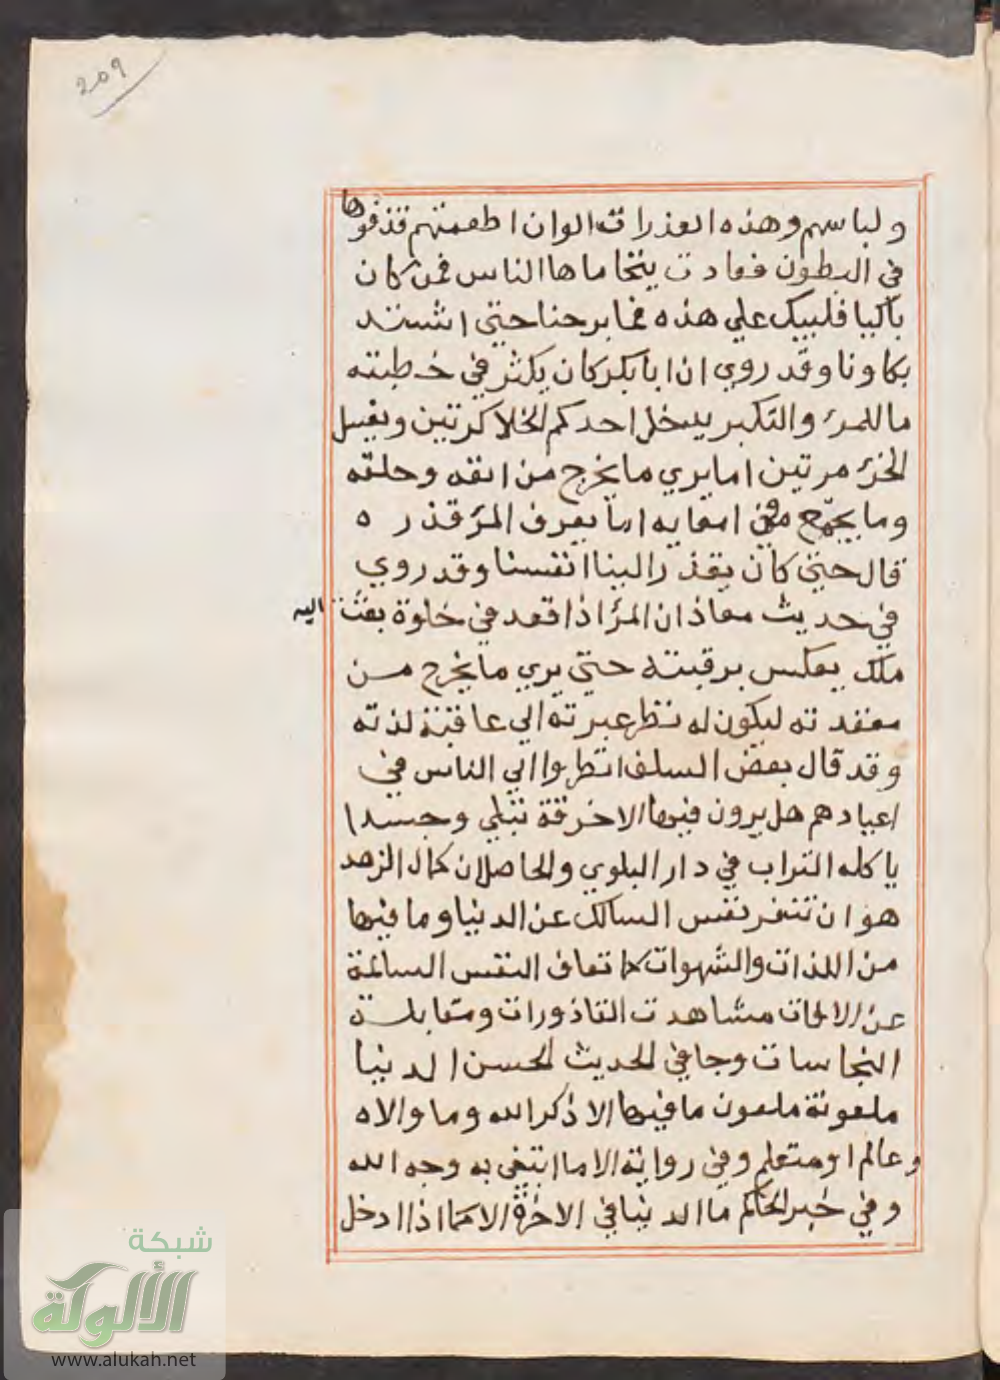 209
ولباسهم وهذه العذرات الوان اطعمتهم قذفوها
في البطون فعادت يتحاماها الناس فمن كان
باكيا فليبك علي هذه فما برحنا حتي اشتد
بكاونا وقد روي ان ابا بكر كان يكثر في خطبته
ما للمرء والتكبر يدخل احدكم الخلا كرتين ويغسل
الخرء مرتين اما يري ما يخرج من انفه وحلقه
وما يجمع في امعايه اما يعرف المرء قذره
قال حتي كان يقذر الينا انفسنا وقد روي
في حديث معاذ ان المرء اذا قعد في خلوة بعث اليه
ملك يعكس برقبته حتي يري ما يخرج من
مقعدته ليكون له نظر عبرته الي عاقبة لذته
وقد قال بعض السلف انظروا الي الناس في
اعيادهم هل يرون فيها الا خرقة تبلي وجسدا
ياكله التراب في دار البلوي والحاصل ان كمال الزهد
هو ان تنفر نفس السالك عن الدنيا وما فيها
من اللذات والشهوات كما تعاف النفس السالمة
عن الافات مشاهدت القاذورات ومقابلة
النجاسات وجا في الحديث الحسن الدنيا
ملعونة ملعون ما فيها الا ذكر الله وما والاه
وعالم او متعلم وفي رواية الا ما ابتغي به وجه الله
وفي خبر الحاكم ما الدنيا في الاخرة الا كما اذا ادخل
شبكة
الألوكة
www.alukah.net